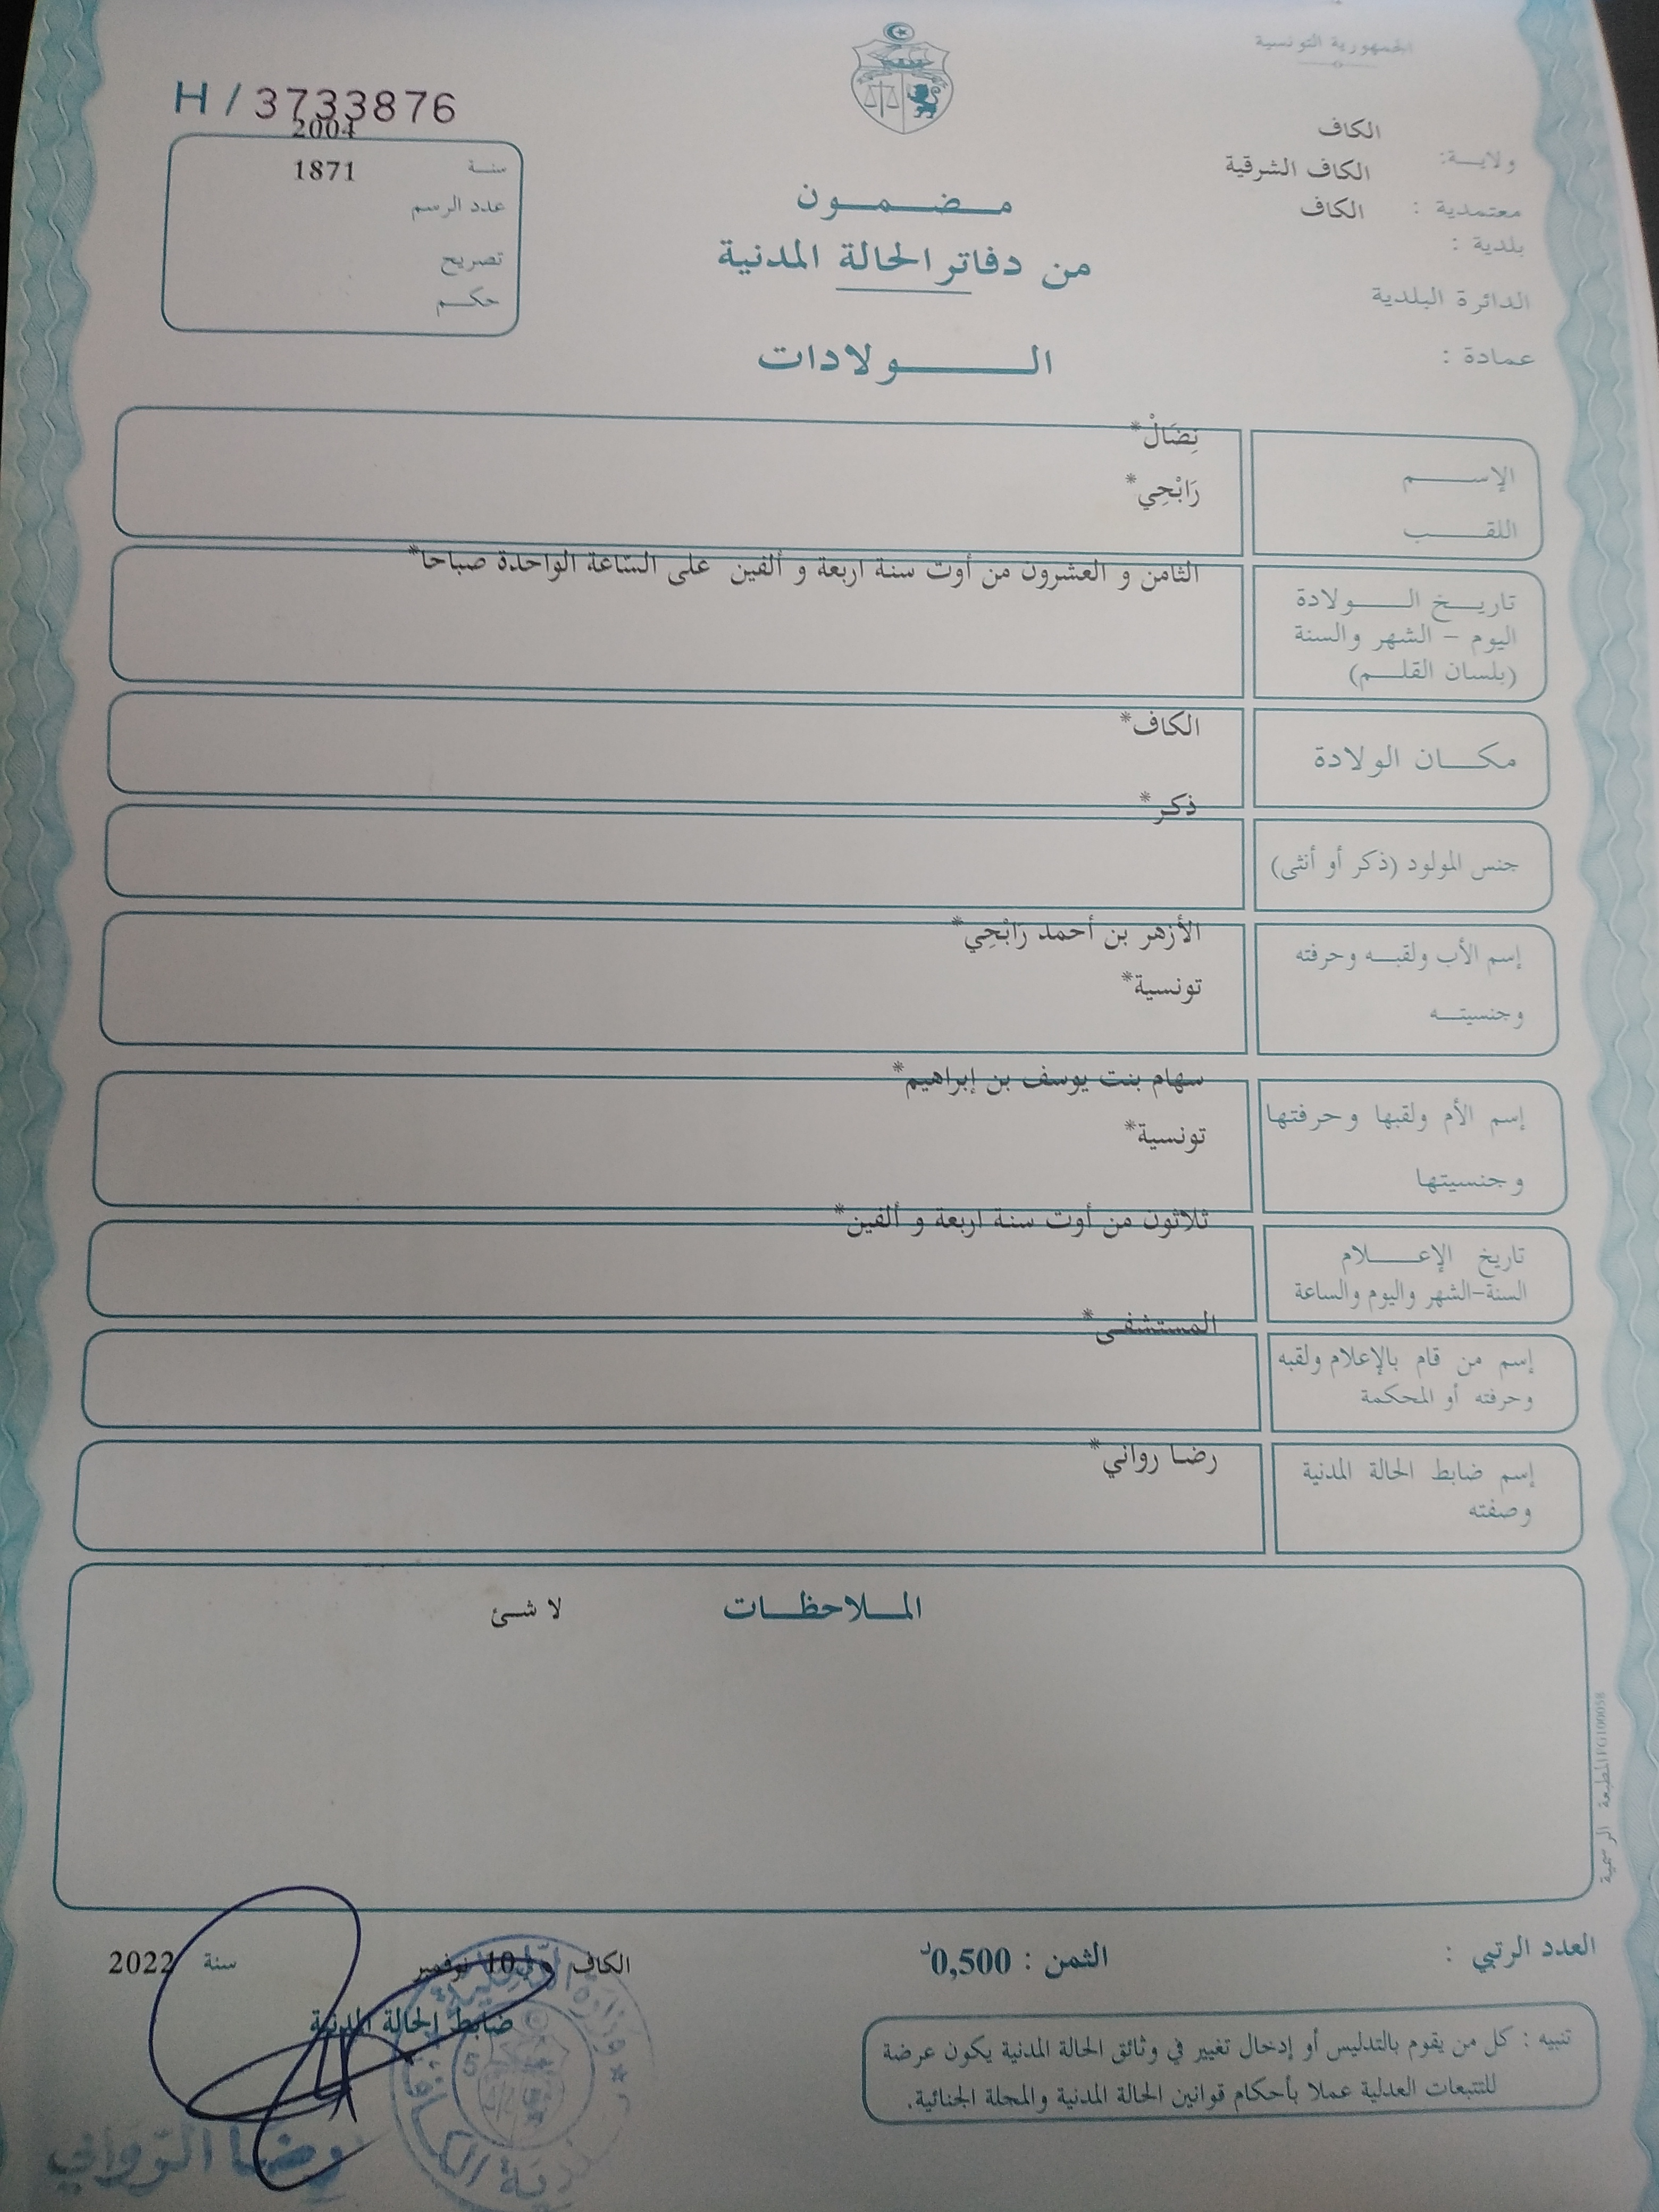 الجمهورية التونسية
H / 3733876
ولايـــة: الكاف
معتمدية : الكاف الشرقية
بلدية : الكاف
الدائرة البلدية
عمادة :
2004
سنــة 1871
عدد الرسم
تصريح
حكــم
مــضــمــون
من دفاتر الحالة المدنية
الــولادات
نِضَالْ*
الإســـم
رَابْحِي*
اللقـــب
الثامن و العشرون من أوت سنة اربعة و ألفين على السّاعة الواحدة صباحا*
تاريــخ الــولادة
اليوم – الشهر والسنة
(بلسان القلــم)
الكاف*
مكــان الولادة
ذكر*
جنس المولود (ذكر أو أنثى)
الأزهر بن أحمد رَابْحِي*
إسم الأب ولقبــه وحرفته
تونسية*
وجنسيتــه
سهام بنت يوسف بن إبراهيم*
إسم الأم ولقبها وحرفتها
تونسية*
وجنسيتها
ثلاثون من أوت سنة اربعة و ألفين*
تاريخ الإعـــلام
السنة-الشهر واليوم والساعة
المستشفى*
إسم من قام بالإعلام ولقبه
وحرفته أو المحكمة
رضا رواني*
إسم ضابط الحالة المدنية
وصفته
المــلاحظــات لا شئ
المطبعة الرسمية FG100058
العدد الرتبي :
الثمن : 0,500د
الكاف في 10 نوفمبر سنة 2022
ضابط الحالة المدنية
تنبيه : كل من يقوم بالتدليس أو إدخال تغيير في وثائق الحالة المدنية يكون عرضة
للتتبعات العدلية عملا بأحكام قوانين الحالة المدنية والمجلة الجنائية.
رضا الرواني